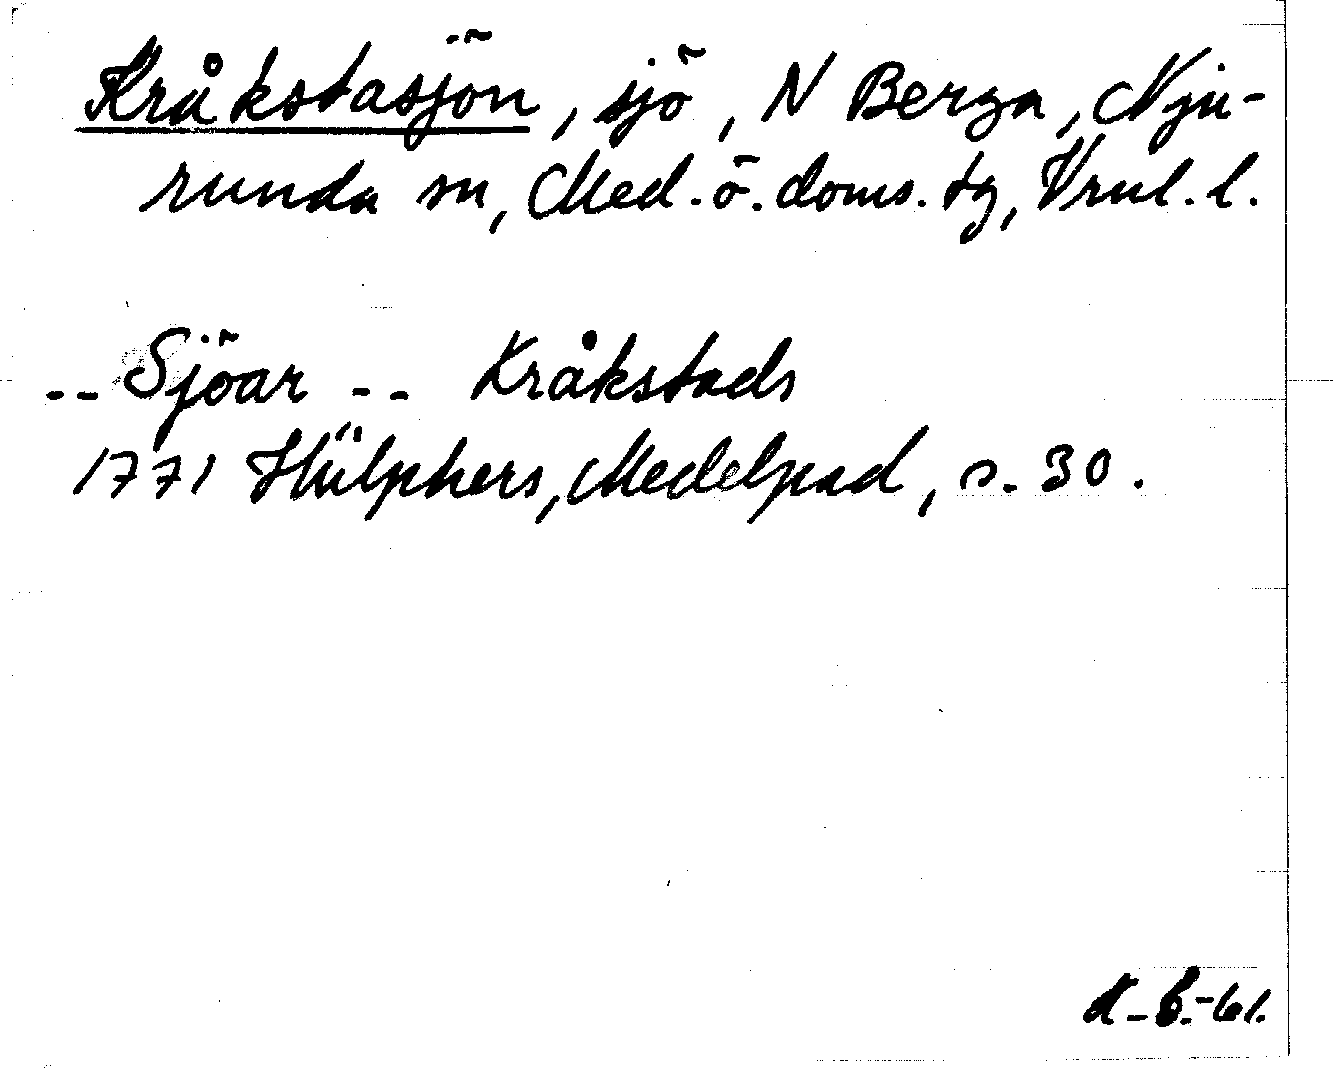 Kråkstasjön, sjö, N Berga, Nju-
runda sn, Med. ö. doms. tg, Vrnl. l.
-- Sjöar -- Kråkstads
1771 Hülphers, Medelpad, s. 30.
-61.